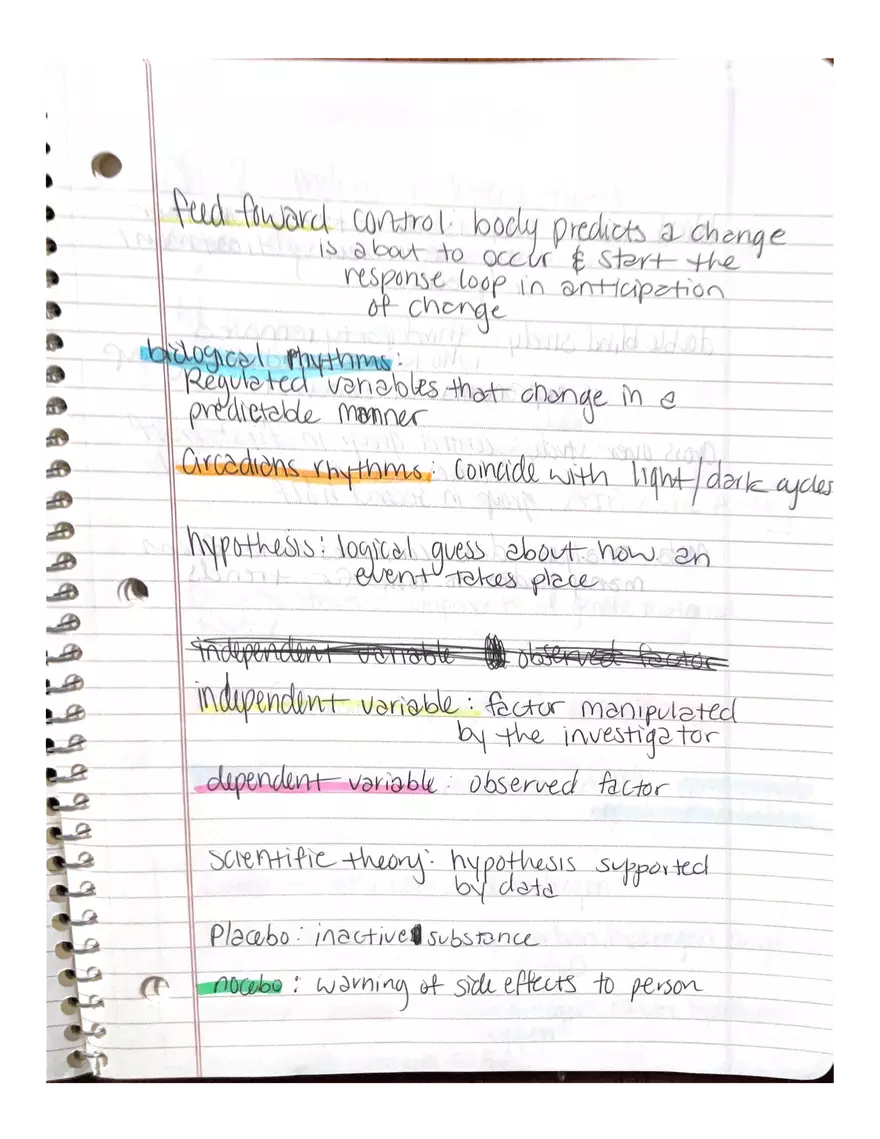 feed foward control: body predicts a change
is about to occur & start the
response loop in anticipation
of change
biological rhythms:
Regulated variables that change in a
predictable manner
Circadians rhythms: coincide with light/dark cycles
hypothesis: logical guess about how an
event takes place
independent variable observed factor
independent variable: factor manipulated
by the investigator
dependent variable: observed factor
scientific theory: hypothesis supported
by data
Placebo: inactive substance
nocebo: warning of side effects to person